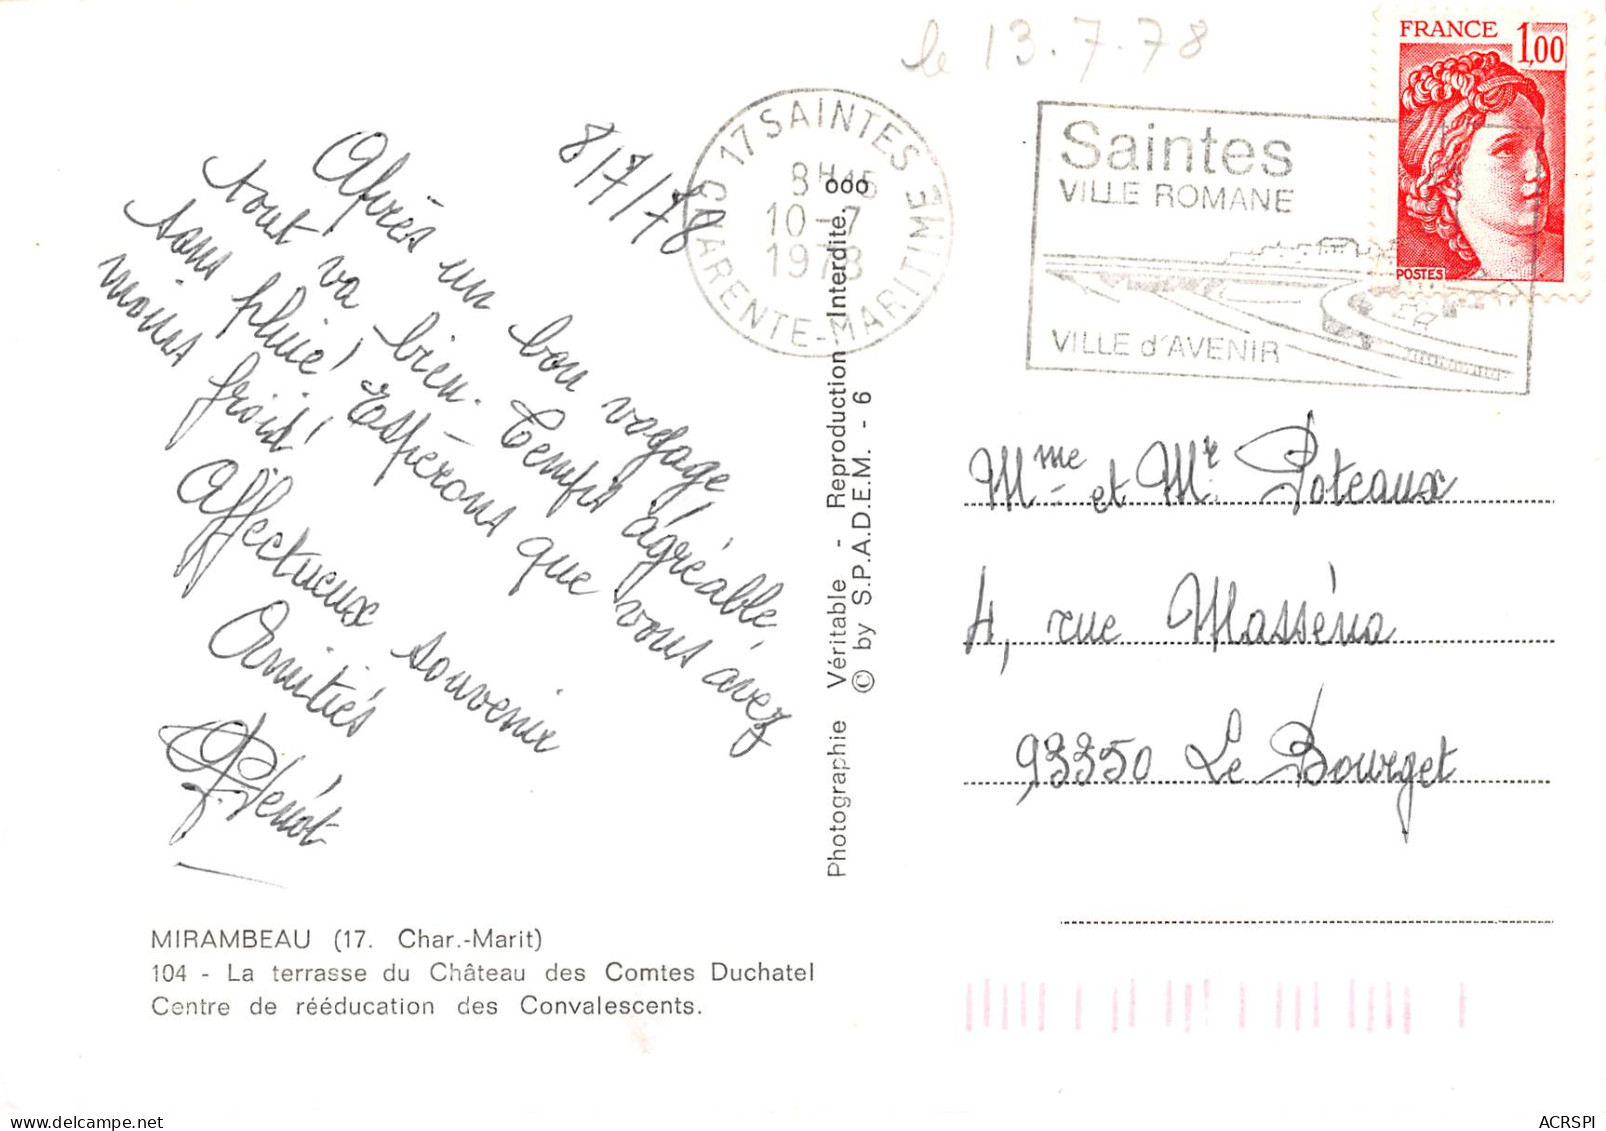 le 13.7.78
FRANCE 1,00
POSTES
17 SAINTES
8H45
10-7
1978
CHARENTE-MARITIME
Saintes
VILLE ROMANE
VILLE d'AVENIR
8/7/78
Après un bon voyage,
tout va bien. Temps agréable,
sans pluie! Espérons que vous avez
moins froid!
Affectueux souvenir
Amitiés
Mme et Mr Poteaux
4, rue Masséna
93350 Le Bourget
Photographie Véritable - Reproduction Interdite.
© by S.P.A.D.E.M. - 6
MIRAMBEAU (17. Char.-Marit)
104 - La terrasse du Château des Comtes Duchatel
Centre de rééducation des Convalescents.
ACRSPI